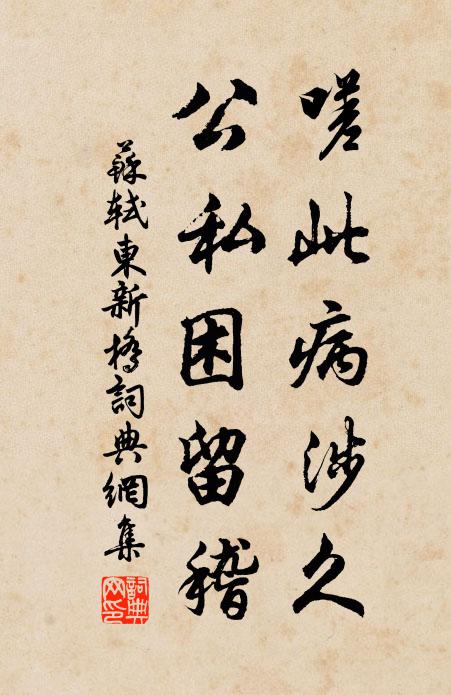 嗟此病涉久
公私困留稽
蘇軾東新橋詞典網集
詞典
网印